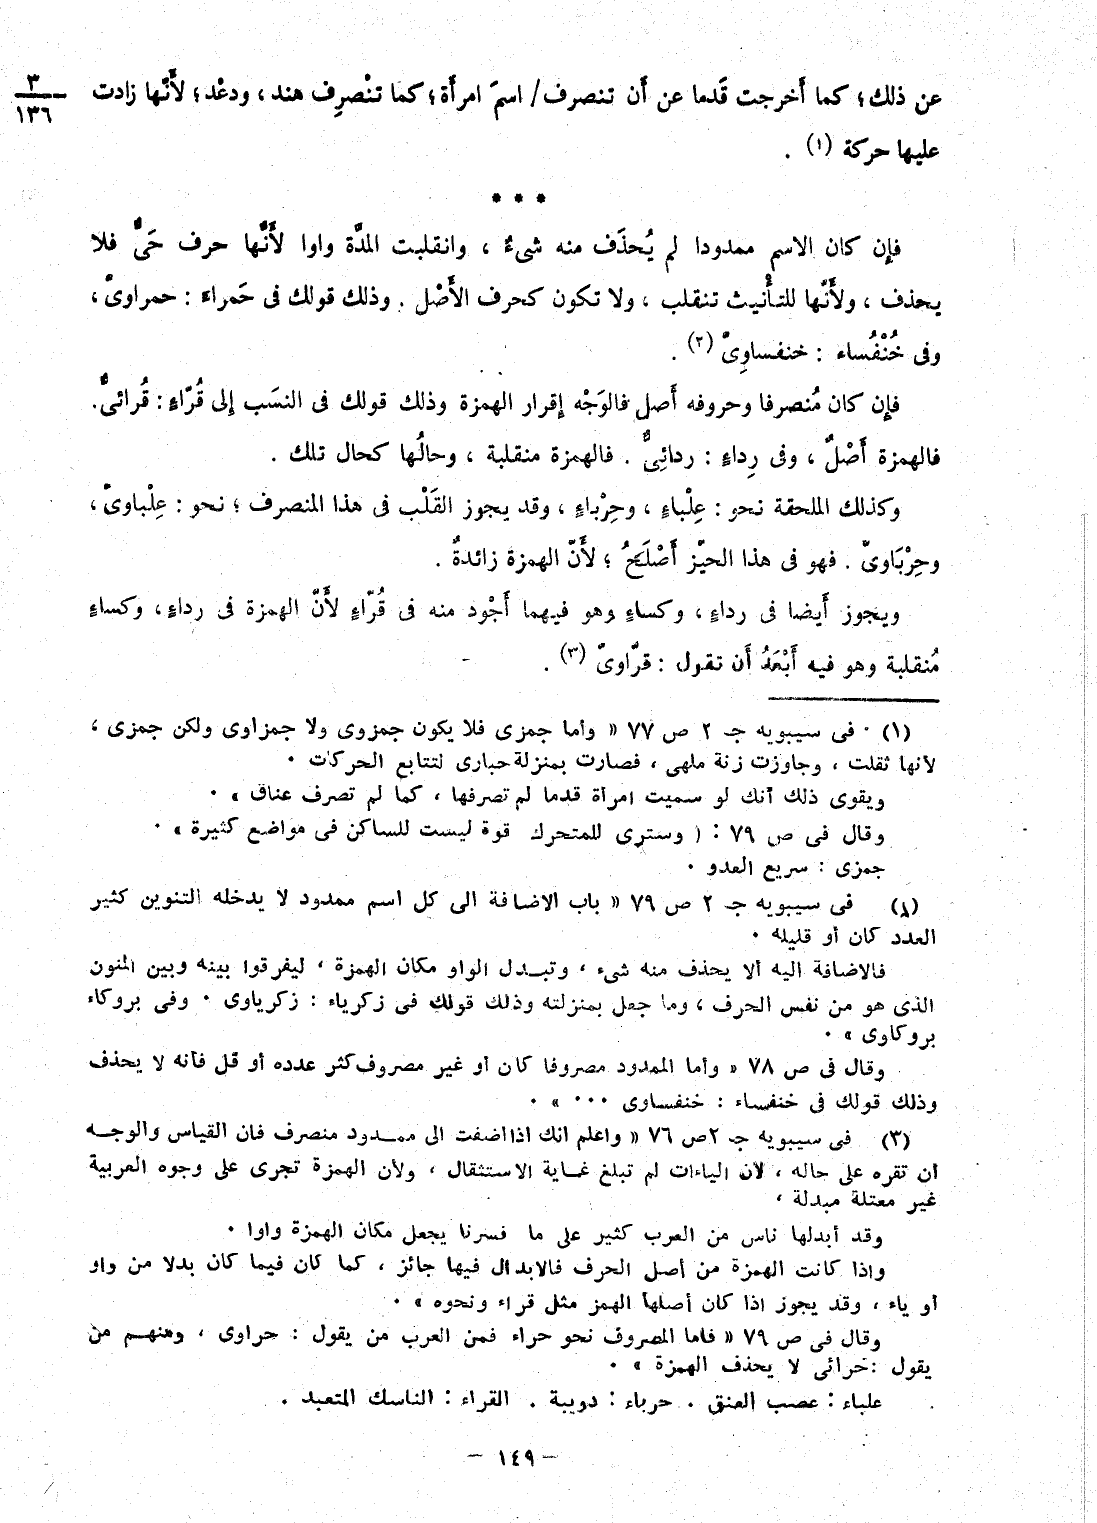 ٣
١٣٦
عن ذلك؛ كما أَخرجت قَدما عن أَن تنصرف/ اسمَ امرأَة؛ كما تنْصرِف هند، ودعْد؛ لأَنَّها زادت
عليها حركة (١) .
* * *
فإِن كان الاسم ممدودا لم يُحذَف منه شىءٌ ، وانقلبت المدَّة واوا لأَنَّها حرف حَىٌّ فلا
يحذف ، ولأَنَّها للتأْنيث تنقلب ، ولا تكون كحرف الأَصْل . وذلك قولك فى حَمراءَ : حمراوىّ ،
وفى خُنْفُساء : خنفساوِىّ (٢) .
فإِن كان مُنصرفا وحروفه أَصل فالوَجْه إِقرار الهمزة وذلك قولك فى النسَب إِلى قُرّاءٍ : قُرائىٌّ .
فالهمزة أَصْلٌ ، وفى رِداءٍ : ردائِىٌّ . فالهمزة منقلبة ، وحالُها كحال تلك .
وكذلك الملحقة نحو : عِلْباءٍ ، وحِرْباءٍ ، وقد يجوز القَلْب فى هذا المنصرف ؛ نحو : عِلْباوىّ ،
وحِرْبَاوىّ . فهو فى هذا الحيّز أَصْلَحُ ؛ لأَنّ الهمزة زائدةٌ .
ويجوز أَيضا فى رداءٍ ، وكساءٍ وهو فيهما أَجْود منه فى قُرّاءٍ لأَنّ الهمزة فى رداءٍ، وكساءٍ
مُنقلبة وهو فيه أَبْعَدُ أَن تقول : قرّاوىّ (٣) .
(١) فى سيبويه جـ ٢ ص ٧٧ « وأما جمزى فلا يكون جمزوى ولا جمزاوى ولكن جمزى ،
لأنها ثقلت ، وجاوزت زنة ملهى ، فصارت بمنزلة حبارى لتتابع الحركات .
ويقوى ذلك أنك لو سميت امرأة قدما لم تصرفها ، كما لم تصرف عناق » .
وقال فى ص ٧٩ : ( وسترى للمتحرك قوة ليست للساكن فى مواضع كثيرة » .
جمزى : سريع العدو .
(٢) فى سيبويه جـ ٢ ص ٧٩ « باب الاضافة الى كل اسم ممدود لا يدخله التنوين كثير
العدد كان أو قليله .
فالاضافة اليه ألا يحذف منه شىء ، وتبـدل الواو مكان الهمزة ، ليفرقوا بينه وبين المنون
الذى هو من نفس الحرف ، وما جعل بمنزلته وذلك قولك فى زكرياء : زكرياوى . وفى بروكاء
بروكاوى » .
وقال فى ص ٧٨ « وأما الممدود مصروفا كان أو غير مصروف كثر عدده أو قل فأنه لا يحذف
وذلك قولك فى خنفساء : خنفساوى ... » .
(٣) فى سيبويه جـ ٢ص ٧٦ « واعلم انك اذا اضفت الى ممـدود منصرف فان القياس والوجـه
أن تقره على حاله ، لأن الياءات لم تبلغ غـاية الاستثقال ، ولأن الهمزة تجرى على وجوه العربية
غير معتلة مبدلة ،
وقد أبدلها ناس من العرب كثير على ما فسرنا يجعل مكان الهمزة واوا .
واذا كانت الهمزة من أصل الحرف فالابدال فيها جائز ، كما كان فيما كان بدلا من واو
أو ياء ، وقد يجوز اذا كان أصلها الهمز مثل قراء ونحوه » .
وقال فى ص ٧٩ « فأما المصروف نحو حراء فمن العرب من يقول : حراوى ، ومنهـم من
يقول :حرائى لا يحذف الهمزة » .
علباء : عصب العنق . حرباء : دويبة . القراء : الناسك المتعبد .
— ١٤٩ —